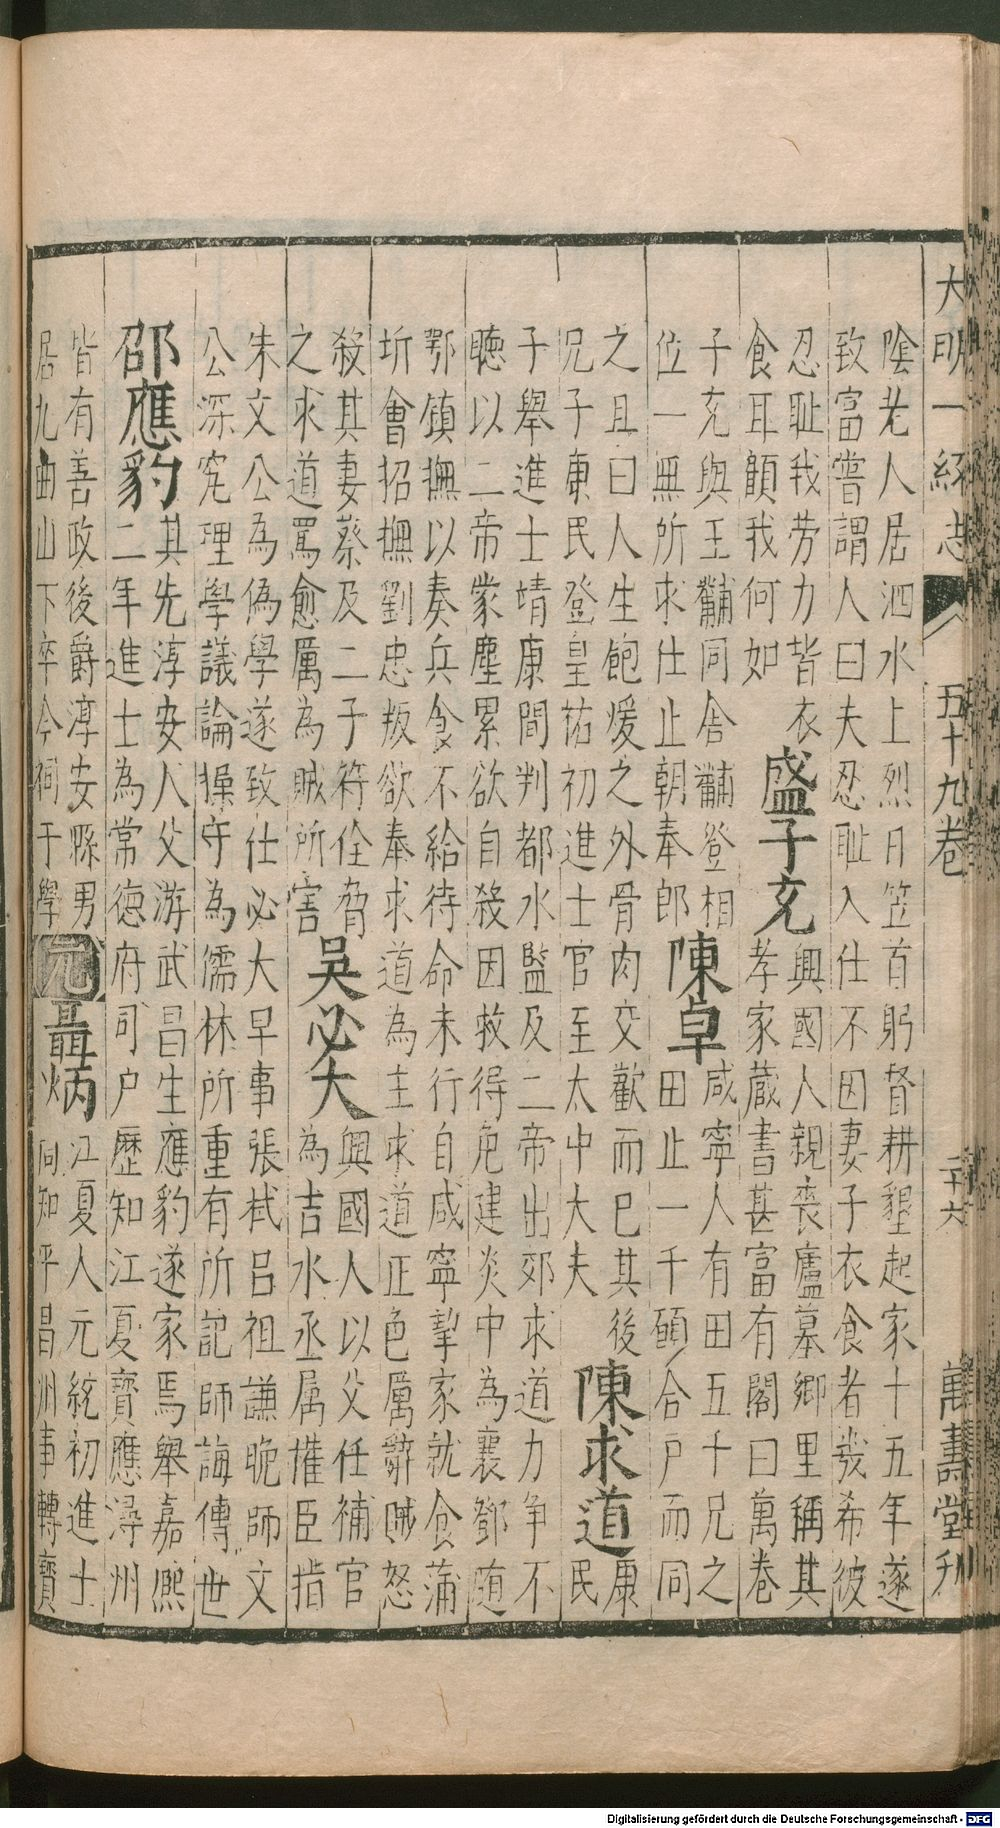 大明一統志 五十九卷 二十六 萬壽堂刊
陰老人居泗水上烈日笠首躬督耕墾起家十五年遂
致富嘗謂人曰夫忍耻入仕不因妻子衣食者幾希彼
忍耻我劳力皆衣
食耳顏我何如
盛子充
興國人親喪廬墓鄉里稱其
孝家藏書甚富有閣曰萬卷
子充與王黼同舍黼登相
位一無所求仕止朝奉郎
陳卓
咸寧人有田五千兄之
田止一千碩合戶而同
之且曰人生飽煖之外骨肉交歡而已其後
兄子東民登皇祐初進士官至太中大夫
陳求道
康
民
子舉進士靖康間判都水監及二帝出郊求道力争不
聽以二帝蒙塵累欲自殺因救得免建炎中為襄鄧随
鄂鎮撫以奏兵食不給待命未行自咸寧挈家就食蒲
圻會招撫劉忠叛欲奉求道為主求道正色厲辭賊怒
殺其妻蔡及二子符佺脅
之求道罵愈厲為賊所害
吳必大
興國人以父任補官
為吉水丞属權臣指
朱文公為偽學遂致仕必大早事張栻吕祖謙晚師文
公深究理學議論操守為儒林所重有所記師誨傳世
邵應豹
其先淳安人父游武昌生應豹遂家焉舉嘉熙
二年進士為常德府司户歷知江夏寶應潯州
皆有善政後爵淳安縣男
居九曲山下卒今祠于學
元
聶炳
江夏人元統初進士
同知平昌州事轉寶
Digitalisierung gefördert durch die Deutsche Forschungsgemeinschaft - DFG